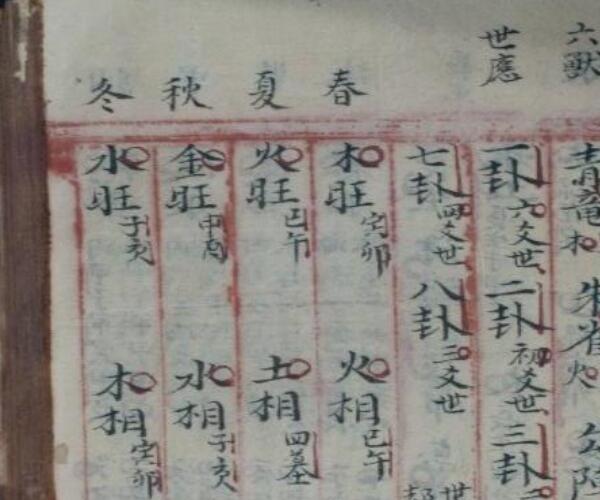 六獸
青竜木
朱雀火
世應
一卦六爻世
二卦初爻世
三卦
七卦四爻世
八卦三爻世
世
春
木旺寅卯
火相巳午
夏
火旺巳午
土相四墓
秋
金旺申酉
水相子亥
冬
水旺子亥
木相寅卯